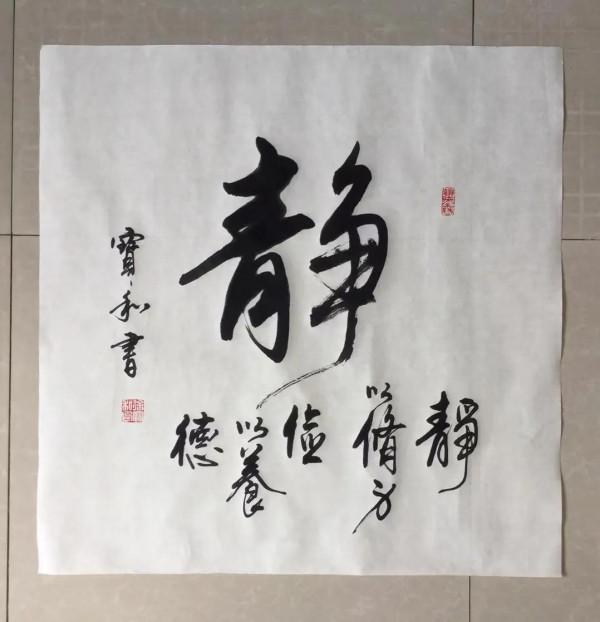 静
靜
以脩身
儉
以養
德
寶和書